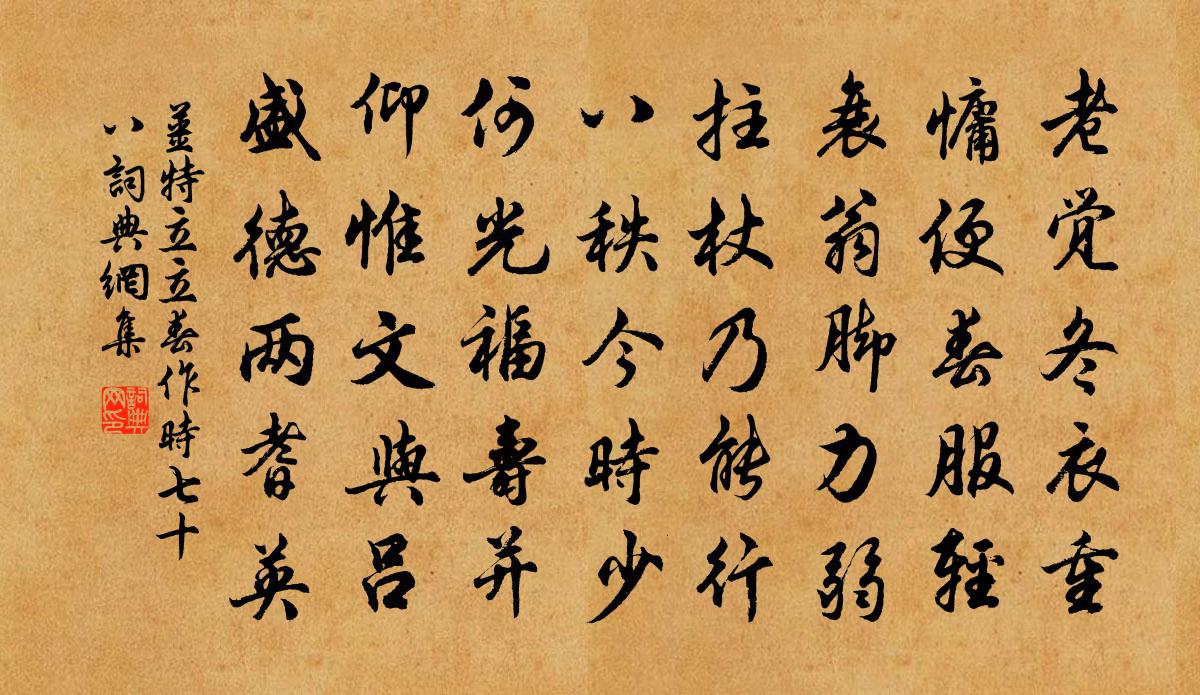 老觉冬衣重
慵便春服輕
衰翁脚力弱
拄杖乃能行
八秩今時少
何光福壽并
仰惟文與呂
盛德两耆英
姜特立立春作時七十
八詞典網集
詞典
网印